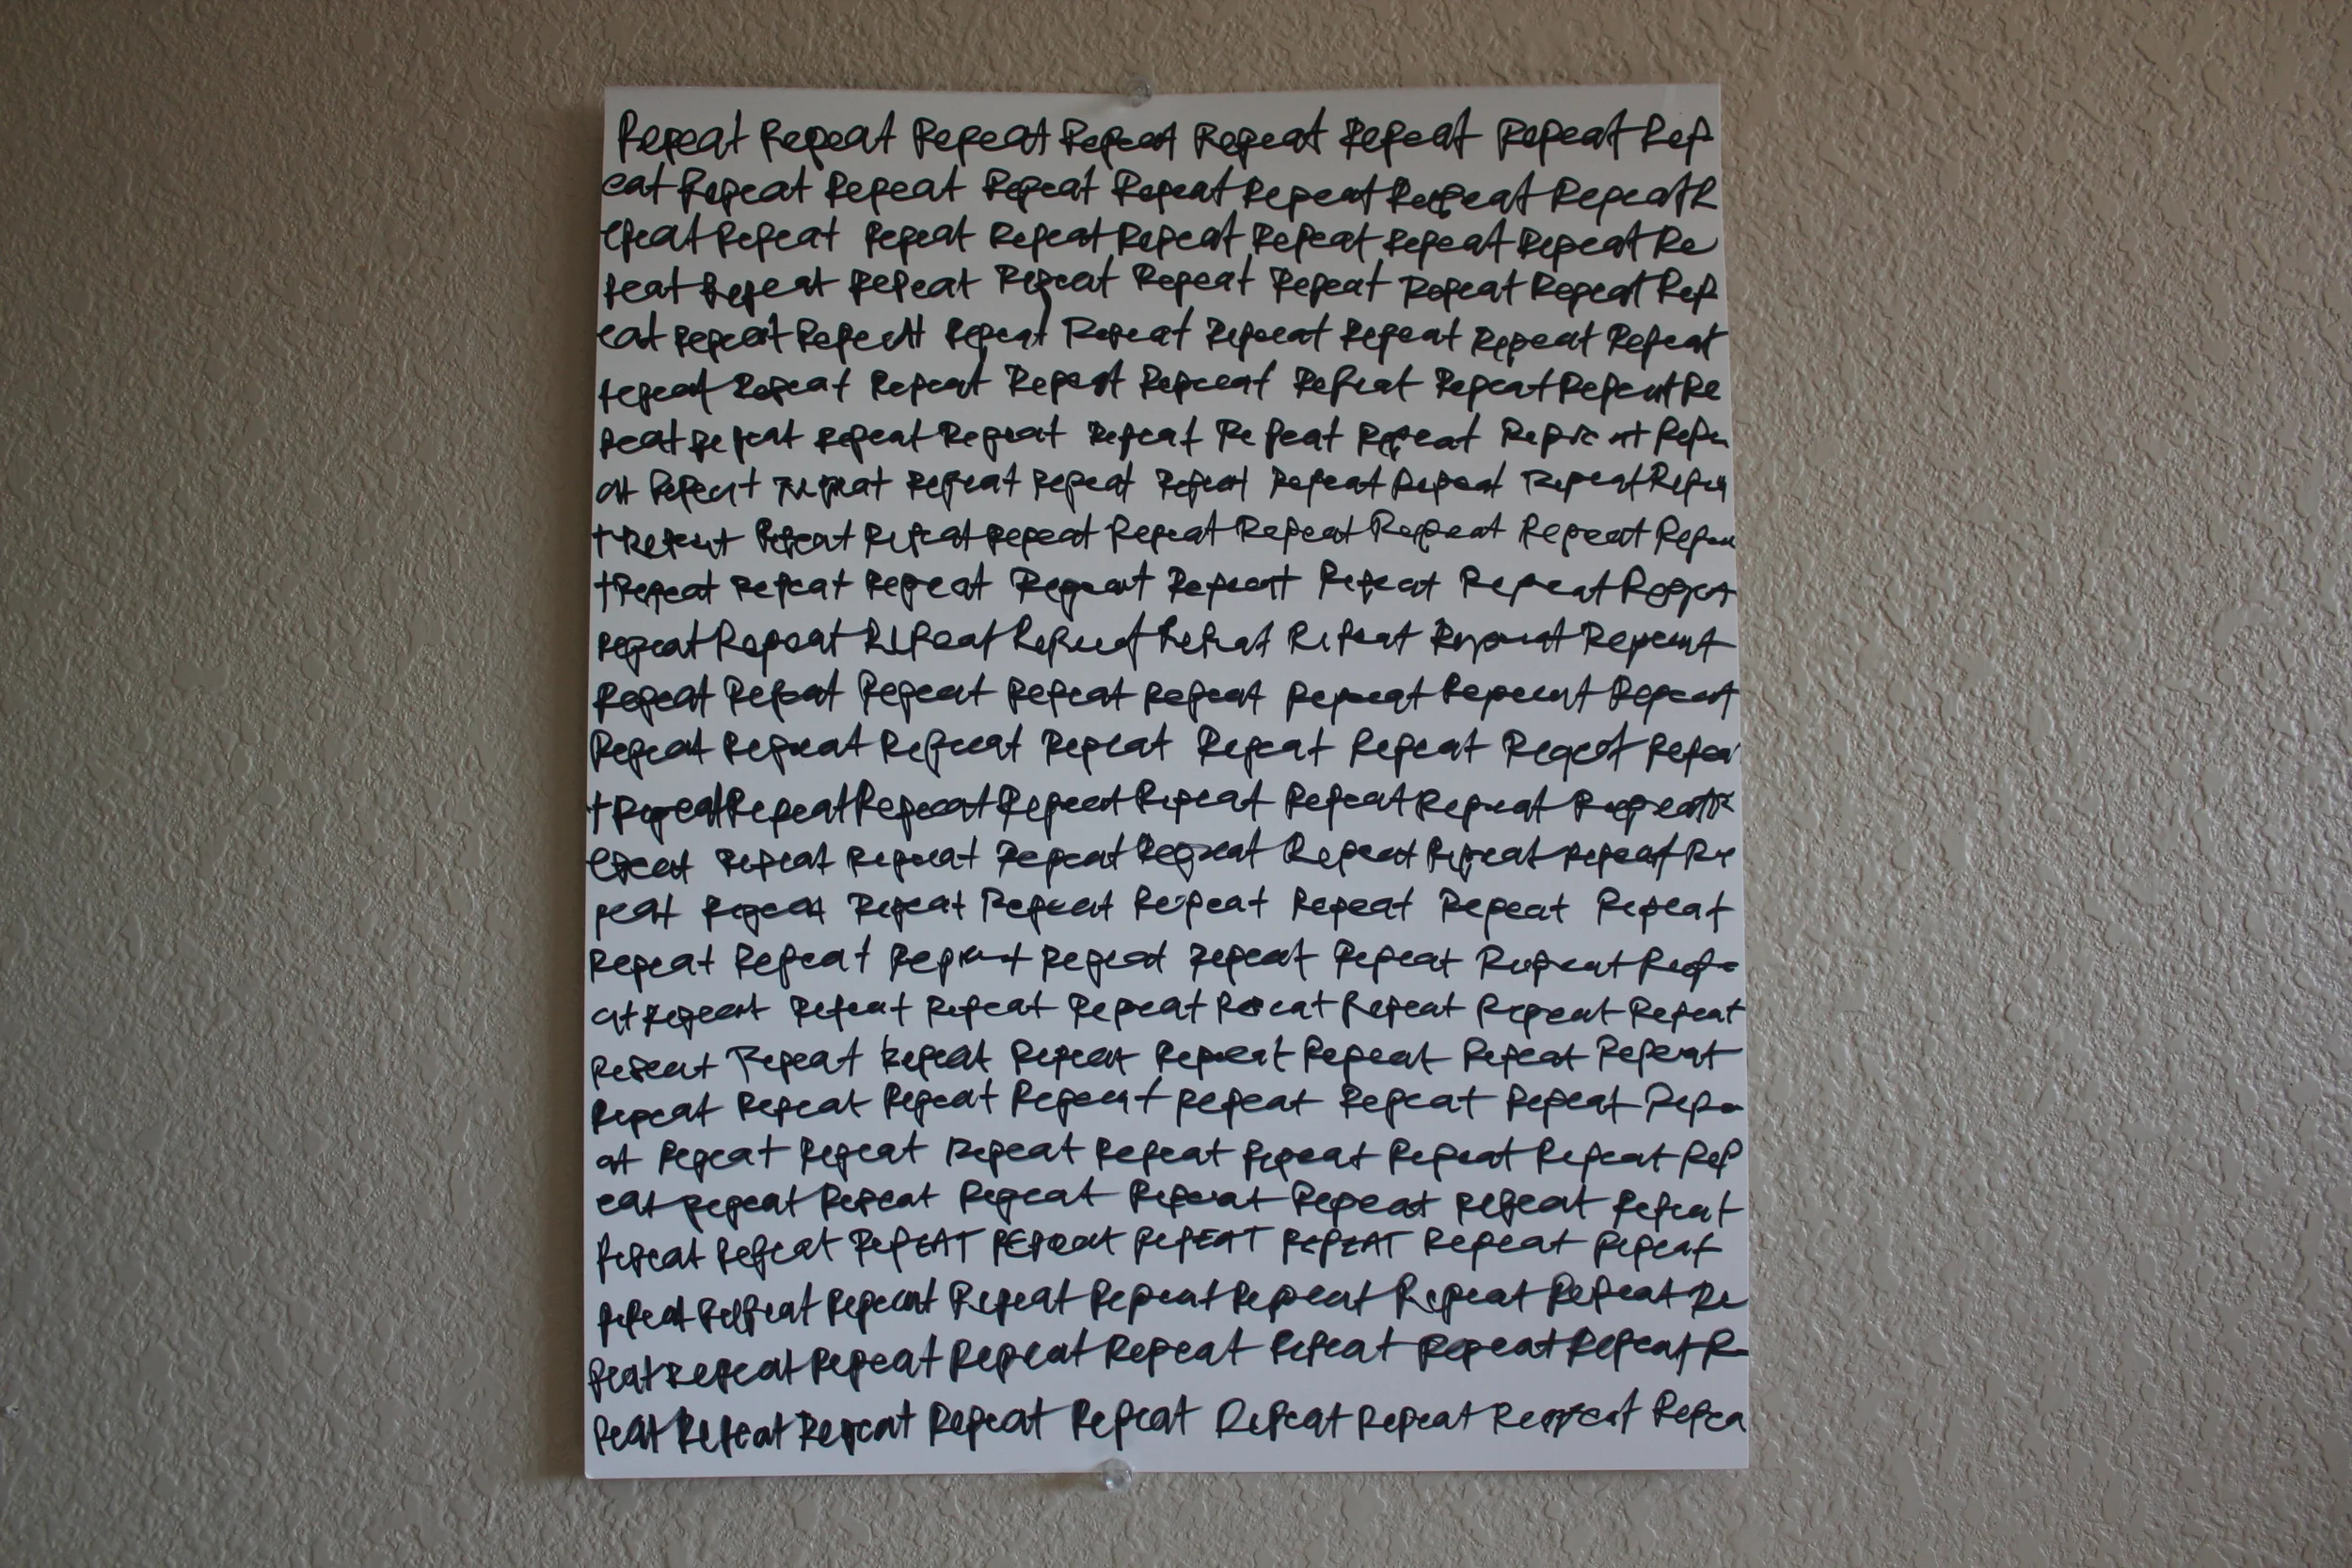 Repeat Repeat Repeat Repeat Repeat Repeat Repeat Rep
eat Repeat Repeat Repeat Repeat Repeat Repeat Repeat R
epeat Repeat Repeat Repeat Repeat Repeat Repeat Repeat Re
peat Repeat Repeat Repeat Repeat Repeat Repeat Repeat Rep
eat Repeat Repeat Repeat Repeat Repeat Repeat Repeat Repeat
repeat Repeat Repeat Repeat Repeat Repeat Repeat Repeat Re
peat Repeat Repeat Repeat Repeat Repeat Repeat Repeat Repe
at Repeat Repeat Repeat Repeat Repeat Repeat Repeat Repeat Repea
t Repeat Repeat Repeat Repeat Repeat Repeat Repeat Repeat Repea
t Repeat Repeat Repeat Repeat Repeat Repeat Repeat Repea
repeat Repeat Repeat Repeat Repeat Repeat Repeat Repeat
Repeat Repeat Repeat Repeat Repeat Repeat Repeat Repeat
Repeat Repeat Repeat Repeat Repeat Repeat Repeat Repea
t Repeat Repeat Repeat Repeat Repeat Repeat Repeat Repeat R
epeat Repeat Repeat Repeat Repeat Repeat Repeat Repeat Re
peat Repeat Repeat Repeat Repeat Repeat Repeat Repeat
Repeat Repeat Repeat Repeat Repeat Repeat Repeat Repe
at Repeat Repeat Repeat Repeat Repeat Repeat Repeat Repeat
Repeat Repeat Repeat Repeat Repeat Repeat Repeat Repeat
Repeat Repeat Repeat Repeat Repeat Repeat Repeat Repe
at Repeat Repeat Repeat Repeat Repeat Repeat Repeat Rep
eat Repeat Repeat Repeat Repeat Repeat Repeat Repeat
Repeat Repeat RepEAT REPeat RepEAT RePEAT Repeat Repeat
Repeat Repeat Repeat Repeat Repeat Repeat Repeat Repeat Re
peat Repeat Repeat Repeat Repeat Repeat Repeat Repeat R
peat Repeat Repeat Repeat Repeat Repeat Repeat Repeat Repea